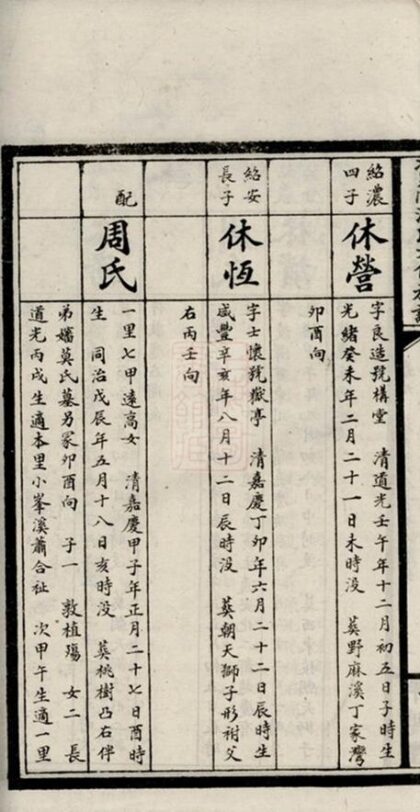 紹濃
四子
休營
字良造號構堂 清道光壬午年十二月初五日子時生
光緒癸未年二月二十一日未時没 葬野麻溪丁家灣
卯酉向
紹安
長子
休恆
字士懷號嶽亭 清嘉慶丁卯年六月二十二日辰時生
咸豐辛亥年八月十二日辰時没 葬朝天獅子形祔父
右丙壬向
配
周氏
一里七甲達高女 清嘉慶甲子年正月二十七日酉時
生 同治戊辰年五月十八日亥時没 葬桃樹凸右伴
弟嬸莫氏墓另冢卯酉向 子一 敦植殤 女二 長
道光丙戌生適本里小峯溪蕭合祉 次甲午生適一里